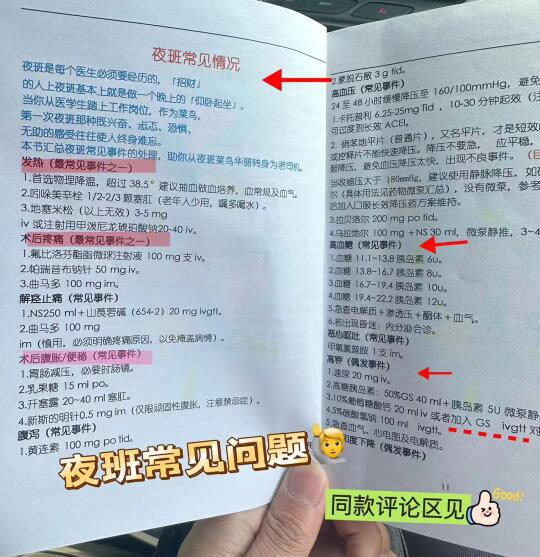 夜班常见情况
夜班是每个医生必须要经历的，「招财」
的人上夜班基本上就是做一个晚上的「仰卧起坐」。
当你从医学生踏上工作岗位，作为菜鸟，
第一次夜班那种既兴奋、忐忑、恐惧、
无助的感受往往使人终身难忘。
本书汇总夜班常见事件的处理，助你从夜班菜鸟华丽转身为老司机。
发热（最常见事件之一）
1.首选物理降温，超过 38.5°建议抽血做血培养，血常规及血气。
2.吲哚美辛栓 1/2-2/3 颗塞肛（老年人少用，嘱多喝水）。
3.地塞米松（以上无效）3-5 mg
iv 或注射用甲泼尼龙琥珀酸钠20-40 iv。
术后疼痛（最常见事件之一）
1.氟比洛芬酯脂微球注射液 100 mg 支 iv。
2.帕瑞昔布钠针 50 mg iv。
3.曲马多 100 mg im。
解痉止痛（常见事件）
1.NS250 ml＋山莨菪碱（654-2）20 mg ivgtt。
2.曲马多 100 mg
im（慎用，必须明确疼痛原因，以免掩盖病情）。
术后腹胀/便秘（常见事件）
1.胃肠减压，必要时肠镜。
2.乳果糖 15 ml po。
3.开塞露 20-40 ml 塞肛。
4.新斯的明针0.5 mg im（仅限顽固性腹胀，注意禁忌症）。
腹泻（常见事件）
1.黄连素 100 mg po tid。
2.蒙脱石散 3 g tid。
高血压（常见事件）
24 至 48 小时缓慢降压至 160/100mmHg，避免
1.卡托普利 6.25-25mg Tid，10-30 分钟起效（注
可过度到长效 ACEI。
2. 硝苯地平片（普通片），又名平片，才是短效
或控释片不能快速降压。降压不要急， 应平稳，
服降压，避免血压降压太快，出现不良事件。（目
当收缩压大于 180mmHg，建议使用静脉降压，如
尔（具体用法见药物微泵汇总），没有微泵，参考
后加入口服长效降压药方案维持。
3.拉贝洛尔 200 mg po tid.
4.乌拉地尔 100 mg ＋NS 30 ml，微泵静推，3-4
高血糖（常见事件）
1.血糖 11.1~13.8 胰岛素 6u。
2.血糖 13.8~16.7 胰岛素 8u。
3.血糖 16.7~19.4 胰岛素 10u。
4.血糖 19.4~22.2 胰岛素 12u。
5.急查电解质＋渗透压＋酮体＋血气。
6.若出现昏迷：内分泌会诊。
恶心呕吐（常见事件）
甲氧氯普胺 1 支 im。
高钾（偶发事件）
1.速尿 20 mg iv。
2.高糖胰岛素：50%GS 40 ml＋胰岛素 5U 微泵静
3.10%葡萄糖酸钙 20 ml iv 或者加入 GS ivgtt 对
4.5%碳酸氢钠 100 ml ivgtt。
5.急查血气、心电图及电解质。
度下降（偶发事件）
11
夜班常见问题
同款评论区见
Good!